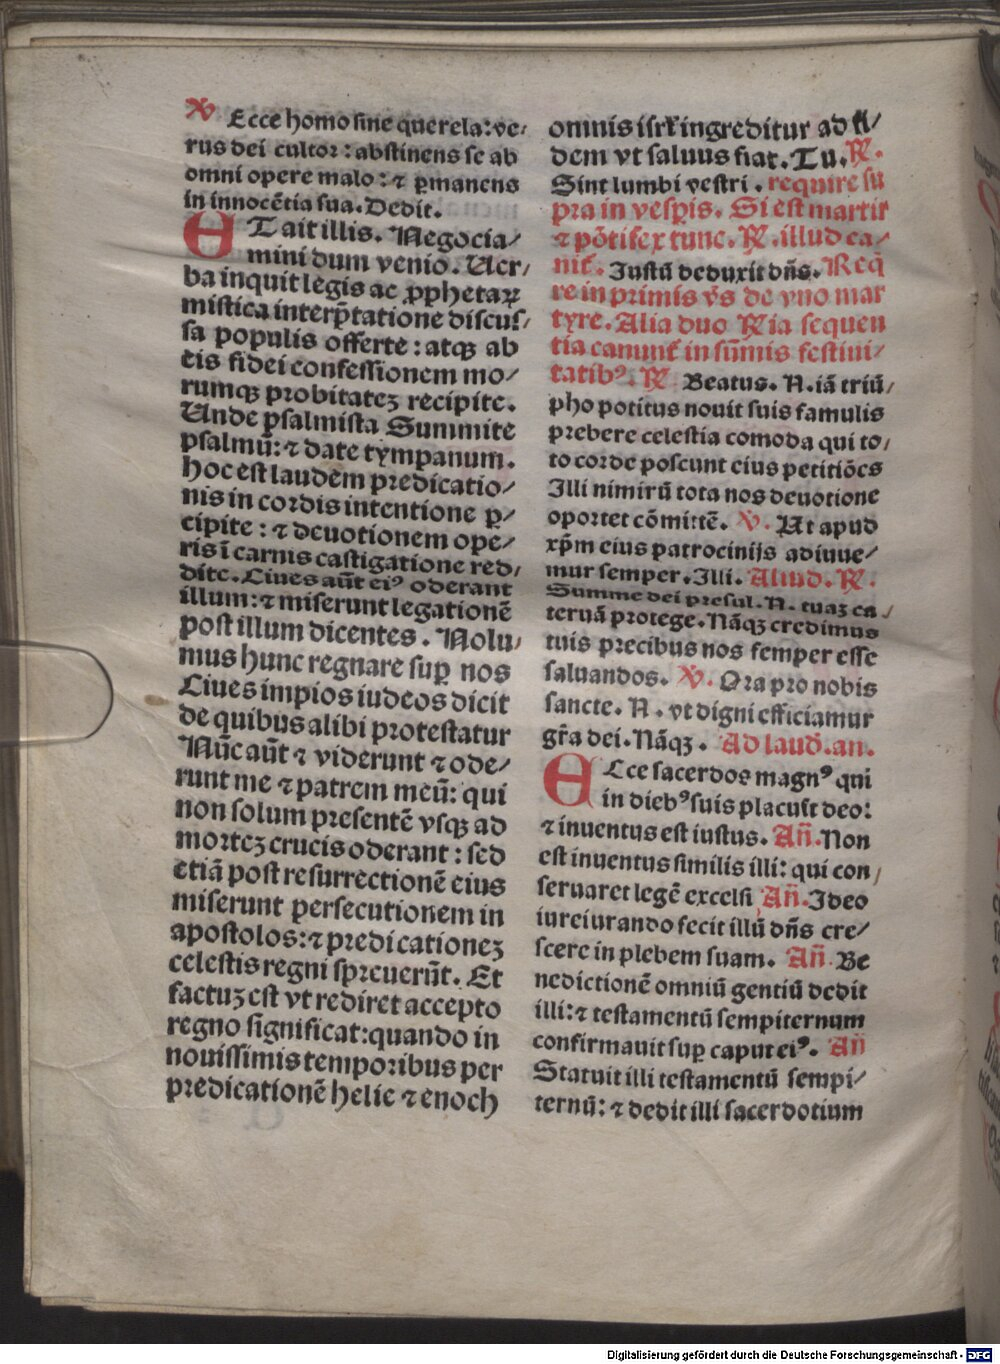 ℣ Ecce homo sine querela: ve⸗
rus dei cultor: abstinens se ab
omni opere malo: ⁊ ꝑmanens
in innocẽtia sua. Dedit.
ET ait illis. Negocia⸗
mini dum venio. Uer⸗
ba inquit legis ac ꝓphetaꝝ
mistica interp̃tatione discus⸗
sa populis offerte: atqꝫ ab
eis fidei confessionem mo⸗
rumqꝫ probitateꝫ recipite.
Unde psalmista Summite
psalmũ: ⁊ date tympanum.
hoc est laudem predicatio⸗
nis in cordis intentione ꝑ⸗
cipite: ⁊ deuotionem ope⸗
ris ĩ carnis castigatione red⸗
dite. Ciues aũt eiꝰ oderant
illum: ⁊ miserunt legationẽ
post illum dicentes. Nolu⸗
mus hunc regnare suꝑ nos
Ciues impios iudeos dicit
de quibus alibi protestatur
Nũc aũt ⁊ viderunt ⁊ ode⸗
runt me ⁊ patrem meũ: qui
non solum presentẽ vsqꝫ ad
morteꝫ crucis oderant: sed
etiã post resurrectionẽ eius
miserunt persecutionem in
apostolos: ⁊ predicationeꝫ
celestis regni spreuerũt. Et
factuꝫ est vt rediret accepto
regno significat: quando in
nouissimis temporibus per
predicationẽ helie ⁊ enoch
omnis isrl̃ ingreditur ad fi⸗
dem vt saluus fiat. Tu. ℟.
Sint lumbi vestri. require su
pra in vesꝑis. Si est martir
⁊ põtifex tunc. ℟. illud ca⸗
nit̃. Justũ deduxit dñs. Req̃
re in primis v̄s de vno mar
tyre. Alia duo ℟ia sequen
tia canunt̃ in sũmis festiui⸗
tatibꝰ. ℟ Beatus. N. iã triũ⸗
pho potitus nouit suis famulis
prebere celestia comoda qui to⸗
to corde poscunt eius petitiões
Illi nimirũ tota nos deuotione
oportet cõmittẽ. ℣. Ut apud
xp̃m eius patrocinijs adiuue⸗
mur semper. Illi. Aliud. ℟.
Summe dei presul. N. tuaꝫ ca⸗
teruã protege. Nãqꝫ credimus
tuis precibus nos semper esse
saluandos. ℣. Ora pro nobis
sancte. N. vt digni efficiamur
gr̃a dei. Nãqꝫ. Ad laud̃. an.
ECce sacerdos magnꝰ qui
in diebꝰ suis placuit deo:
⁊ inuentus est iustus. Añ. Non
est inuentus similis illi: qui con⸗
seruaret legẽ excelsi Añ. Ideo
iureiurando fecit illũ dñs cre⸗
scere in plebem suam. Añ. Be
nedictionẽ omniũ gentiũ dedit
illi: ⁊ testamentũ sempiternum
confirmauit suꝑ caput eiꝰ. Añ
Statuit illi testamentũ sempi⸗
ternũ: ⁊ dedit illi sacerdotium
Digitalisierung gefördert durch die Deutsche Forschungsgemeinschaft - DFG